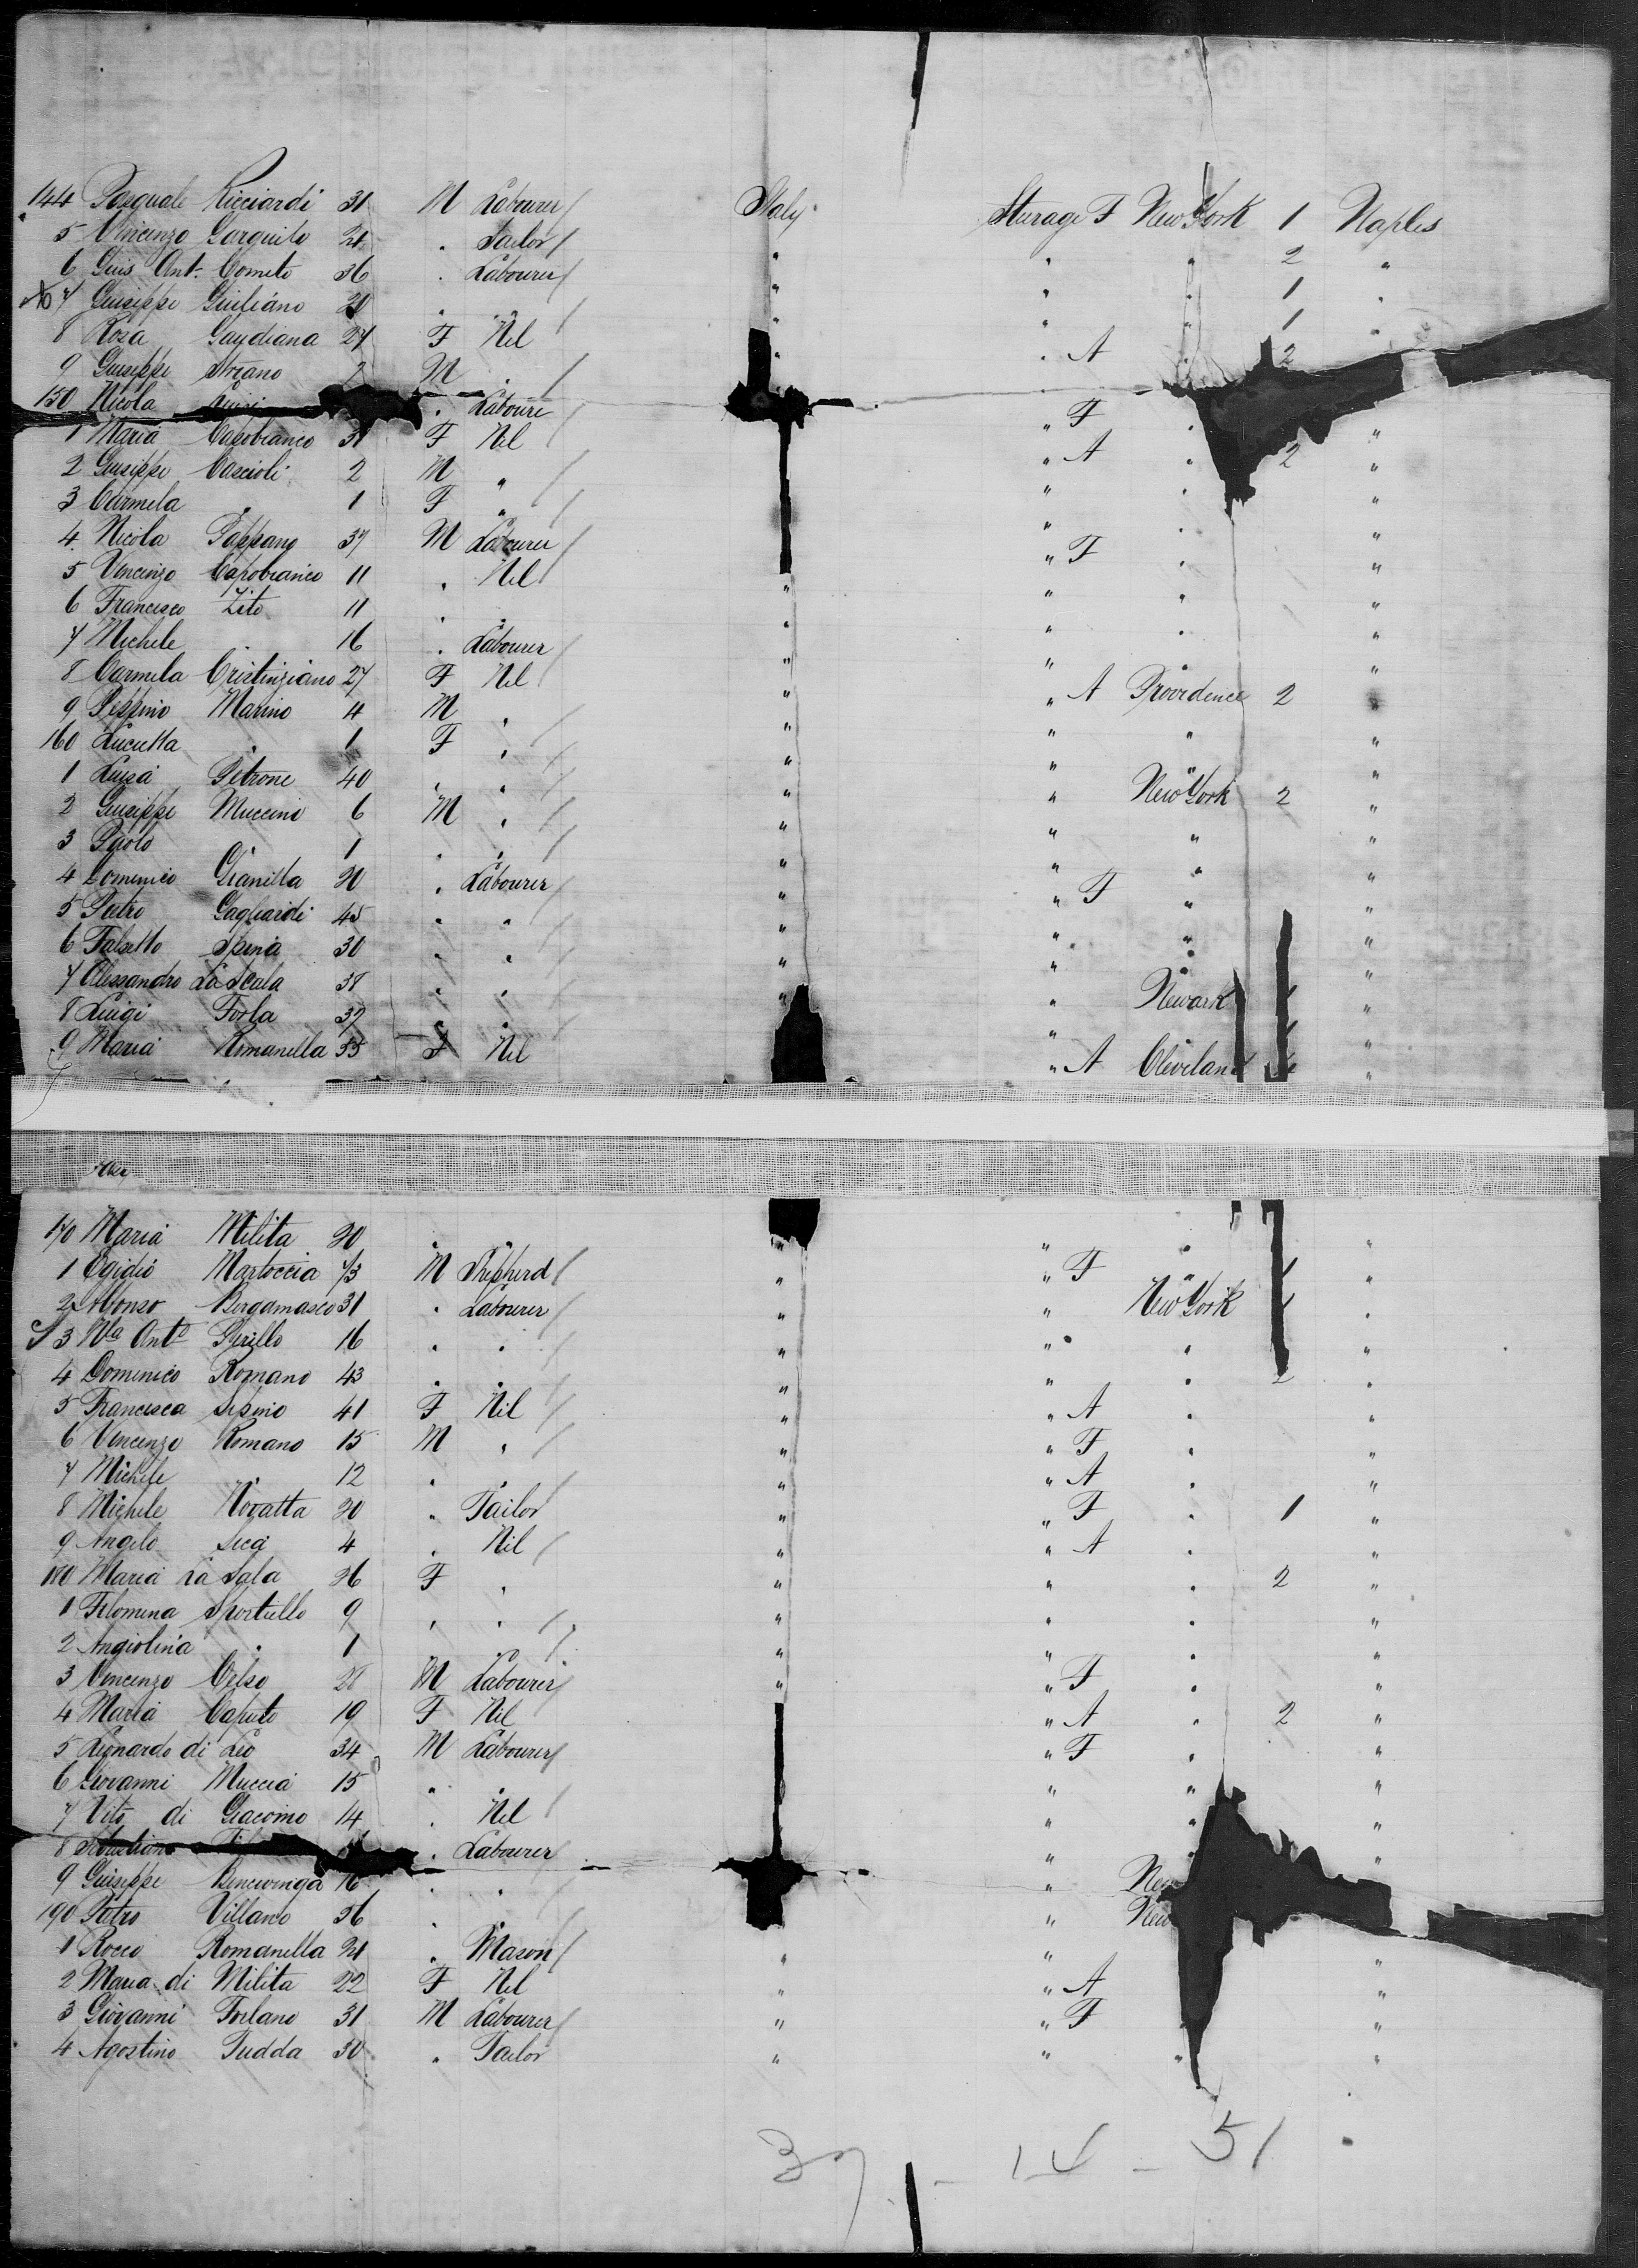 144 Pasquale Ricciardi 31 M Labourer Italy Sterage F New York 1 Naples
5 Vincenzo Garguilo 24 " Tailor " " " 2 "
6 Guis Ant. Cometo 36 " Labourer " " " 1 "
7 Guiseppe Guiliano 21 " " " " " 1 "
8 Rosa Gaydiana 27 F Nil " " A " 2
9 Guiseppe Strano 2 M " "
150 Nicola " Laboure " F "
1 Maria Capobianco 31 F Nil " A " 2 "
2 Guiseppe Cascioli 2 M " " " "
3 Carmela " 1 F " " " "
4 Nicola Pappano 37 M Labourer " F " "
5 Vincenzo Capobianco 11 " Nil " " " "
6 Francesco Zito 11 " " " " " "
7 Michele " 16 " Labourer " " " "
8 Carmela Cristinziano 27 F Nil " " A Providence 2 "
9 Peppino Marino 4 M " " " " "
160 Lucietta " 1 F " " " " "
1 Luisa Petrone 40 " " " " New York 2 "
2 Guiseppe Muccino 6 M " " " " "
3 Paolo " 1 " " " " " "
4 Domenico Gianilla 20 " Labourer " " F " "
5 Pietro Gagliardi 45 " " " " " "
6 Falsetto Spina 30 " " " " " "
7 Alessandro La Scala 38 " " " " Newark "
8 Luigi Forla 37 " " " " "
9 Maria Romanella 55 F Nil " A Cleveland "
170 Maria Milita 20 " " " " " "
1 Egidio Martoccia 43 M Shepherd " " F " "
2 Alfonso Bergamasco 31 " Labourer " " New York "
3 Nla Anto Cirillo 16 " " " " " "
4 Domenico Romano 43 " " " " " 2 "
5 Francesca Sisinio 41 F Nil " " A " "
6 Vincenzo Romano 15 M " " " F " "
7 Michele " 12 " " " " A " "
8 Michele Nogatta 20 " Tailor " " F " 1 "
9 Angelo Sica 4 " Nil " " A " "
180 Maria La Sala 26 F " " " " 2 "
1 Filomena Sportiello 9 " " " " " "
2 Angiolina " 1 " " " " " "
3 Vincenzo Celso 28 M Labourer " " F " "
4 Maria Caputo 19 F Nil " A " 2 "
5 Leonardo di Leo 34 M Labourer " F " "
6 Giovanni Muccia 15 " " " " "
7 Vito di Giacomo 14 " Nil " " "
8 " Labourer " "
9 Guiseppe Bencivenga 16 " " " New
190 Pietro Villano 36 " " " New
1 Rocco Romanella 21 " Mason " " "
2 Maria di Milita 22 F Nil " " A "
3 Giovanni Forlano 31 M Labourer " " F "
4 Agostino Tudda 30 " Tailor " " " "
37 - 14 - 51